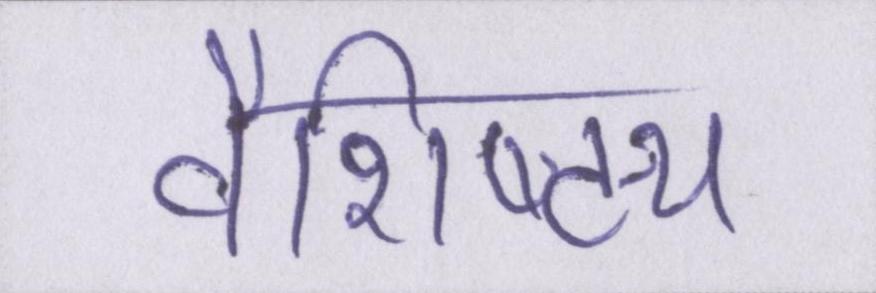 वैशिष्ट्य